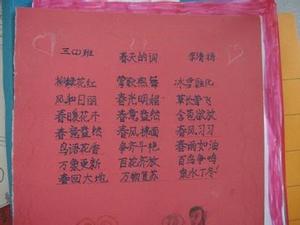 三(2)班 春天的词 李倩玲
柳绿花红 莺歌燕舞 冰雪融化
风和日丽 春光明媚 草长莺飞
春暖花开 春意盎然 含苞欲放
春意盎然 春风拂面 春风习习
鸟语花香 争奇斗艳 春雨如油
万象更新 百花齐放 百鸟争鸣
春回大地 万物复苏 泉水丁冬